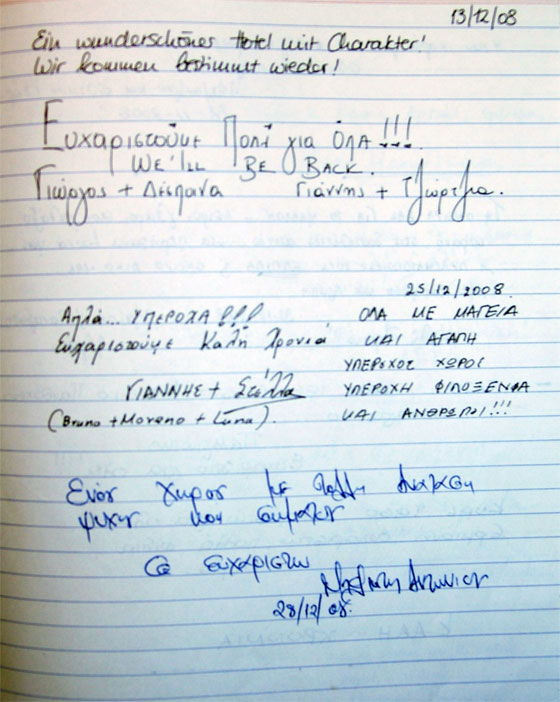 13/12/08
Ein wunderschönes Hotel mit Charakter!
Wir kommen bestimmt wieder!
Ευχαριστούμε Πολύ για Όλα!!!
WE'LL BE BACK.
Γιώργος + Δέσποινα Γιάννης + Τζωρτζια.
25/12/2008
Απλά... ΥΠΕΡΟΧΑ!!!
Ευχαριστούμε Καλή Χρονιά
ΓΙΑΝΝΗΣ + Στέλλα
(Bruno + Moreno + Luna).
ΟΛΑ ΜΕ ΜΑΓΕΙΑ
ΚΑΙ ΑΓΑΠΗ
ΥΠΕΡΟΧΟΣ ΧΩΡΟΣ
ΥΠΕΡΟΧΗ ΦΙΛΟΞΕΝΙΑ
ΚΑΙ ΑΝΘΡΩΠΟΙ!!!
Ενας χωρος με πολλη αναπαυση
ψυχης και σωματος
Σε ευχαριστω
28/12/08.